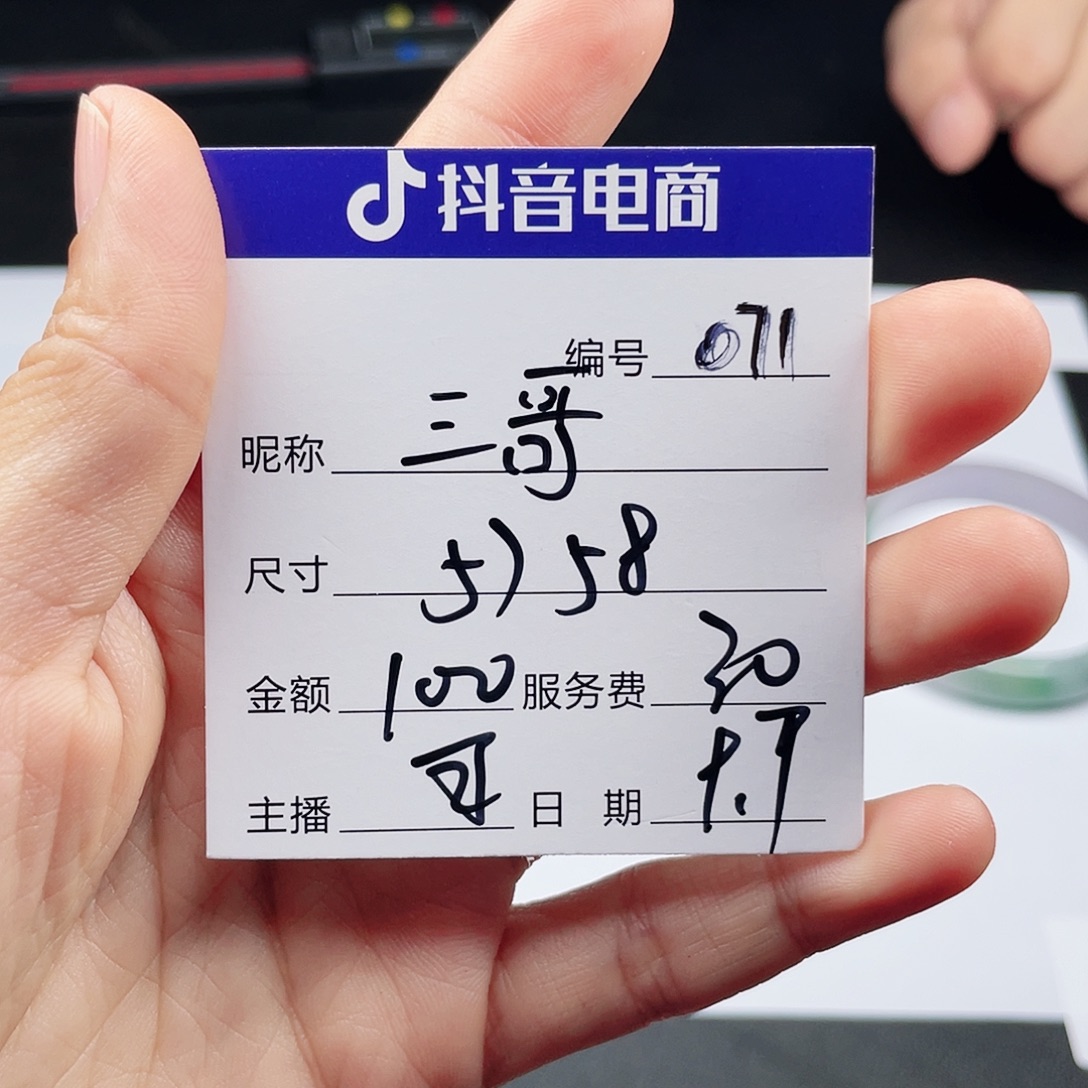 抖音电商
编号 071
昵称 三哥
尺寸 57 58
金额 100 服务费 30
主播 日期